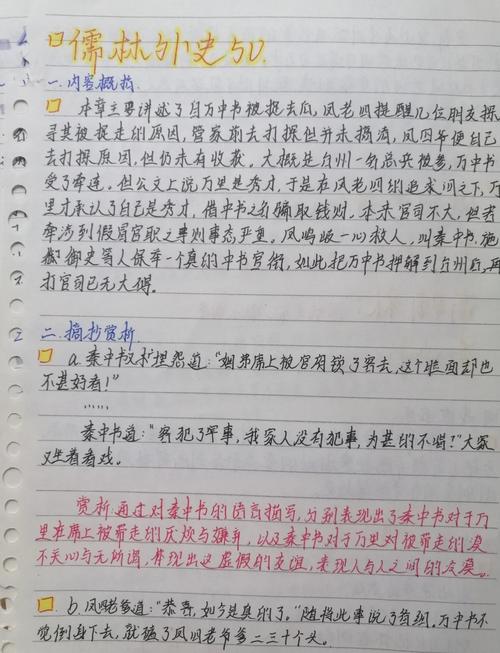 儒林外史50.
一.内容概括
本章主要讲述了自万中书被捉去后，凤老四提醒几位朋友探
寻其被捉走的原因，管家前去打探但并未摸清，凤四爷便自己
去打探原因，但仍未有收获。大概是台州一名总兵被参，万中书
受了牵连。但公文上说万里是秀才，于是在凤老四的追求问之下，万
里才承认了自己是秀才，借中书之名骗取钱财。本来官司不大，但若
牵涉到假冒官职之事则事态严重。凤鸣岐一心救人，叫秦中书、施
御史等人保举一个真的中书官衔，如此把万中书押解到台州后，再
打官司已无大碍。
二.摘抄赏析
a.秦中书又埋怨道："姻弟席上被官府锁了客去，这个脸面却也
不甚好看！"
……
秦中书道："客犯了事，我家人没有犯事，为甚的不唱？"大家
又坐着看戏。
赏析：通过对秦中书的语言描写，分别表现出了秦中书对于万
里在席上被带走的厌烦与嫌弃，以及秦中书对于万里对被带走的漠
不关心与无所谓，体现出这虚假的友谊，表现人与人之间的冷漠。
b.凤四老爹道："恭喜，如今是真的了。"随将此事说了备细。万中书不
觉倒身下去，就磕了凤四老爹二三十个头。